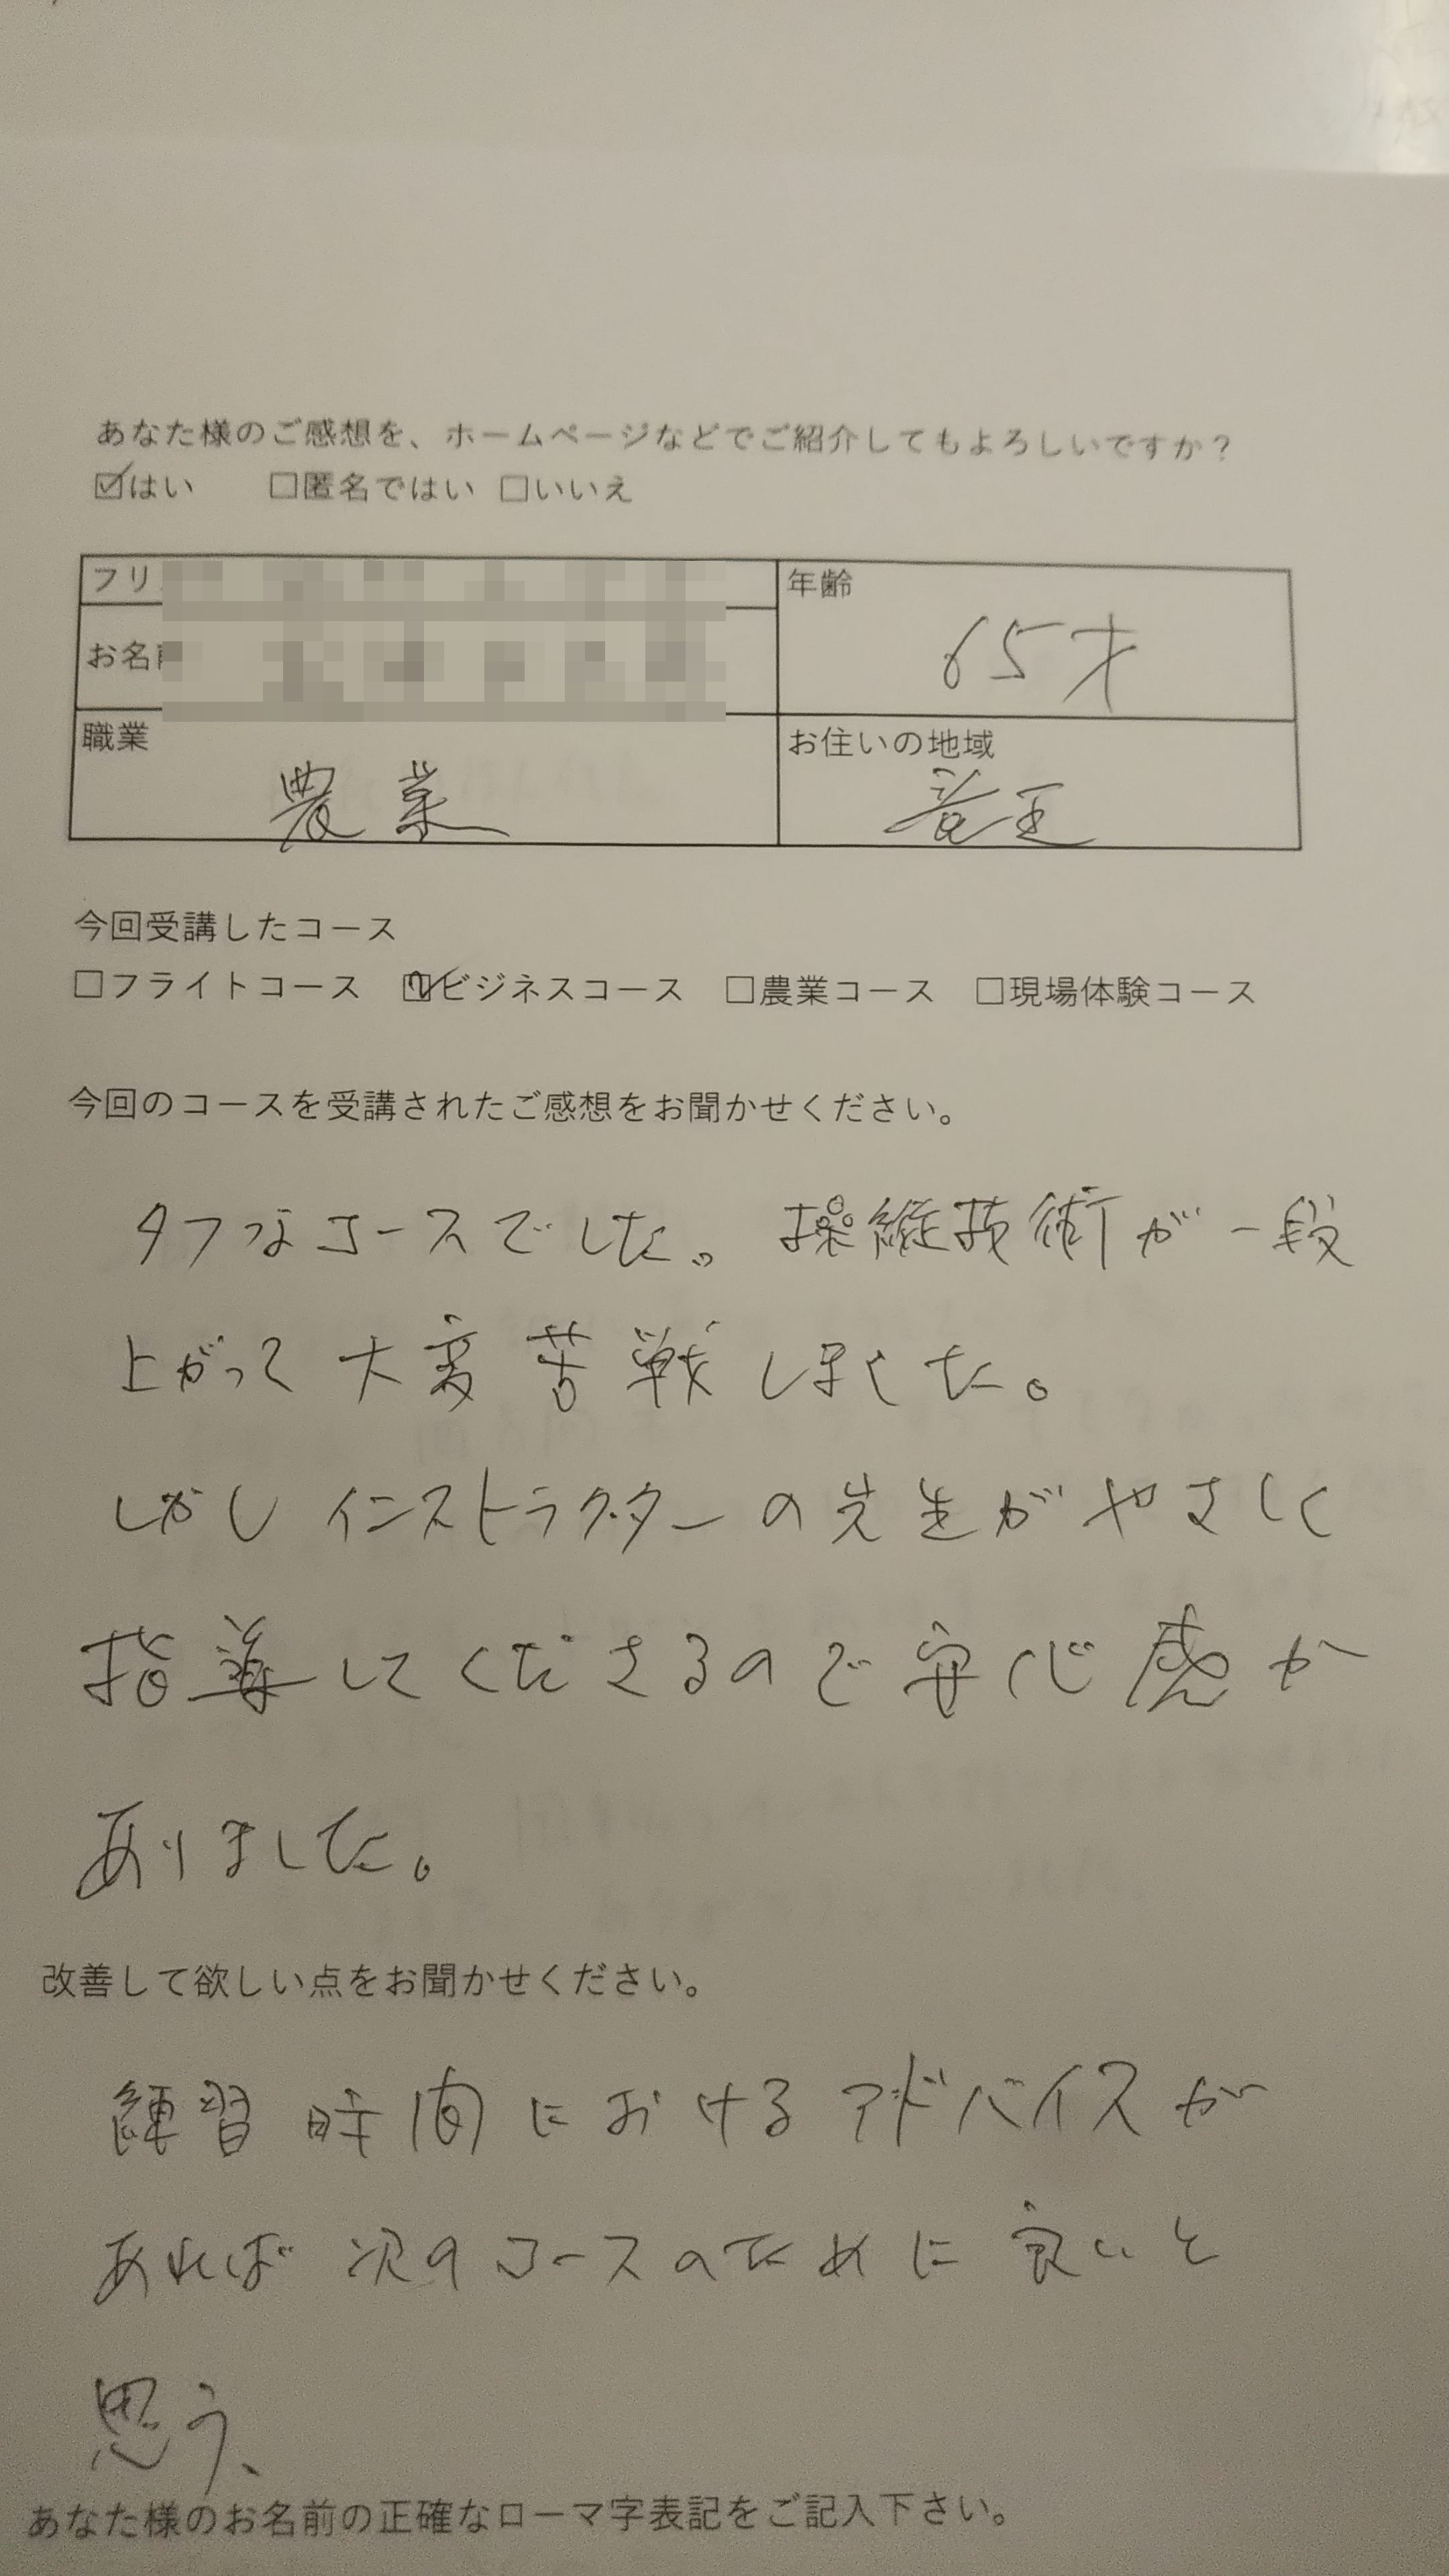 あなた様のご感想を、ホームページなどでご紹介してもよろしいですか?
☑はい □匿名ではい □いいえ
フリ
年齢
65才
お名前
職業
農業
お住いの地域
竜王
今回受講したコース
□フライトコース ☑ビジネスコース □農業コース □現場体験コース
今回のコースを受講されたご感想をお聞かせください。
タフなコースでした。操縦技術が一段
上がって大変苦戦しました。
しかしインストラクターの先生がやさしく
指導してくださるので安心感か
ありました。
改善して欲しい点をお聞かせください。
練習時間におけるアドバイスが
あれば次のコースのために良いと
思う、
あなた様のお名前の正確なローマ字表記をご記入下さい。